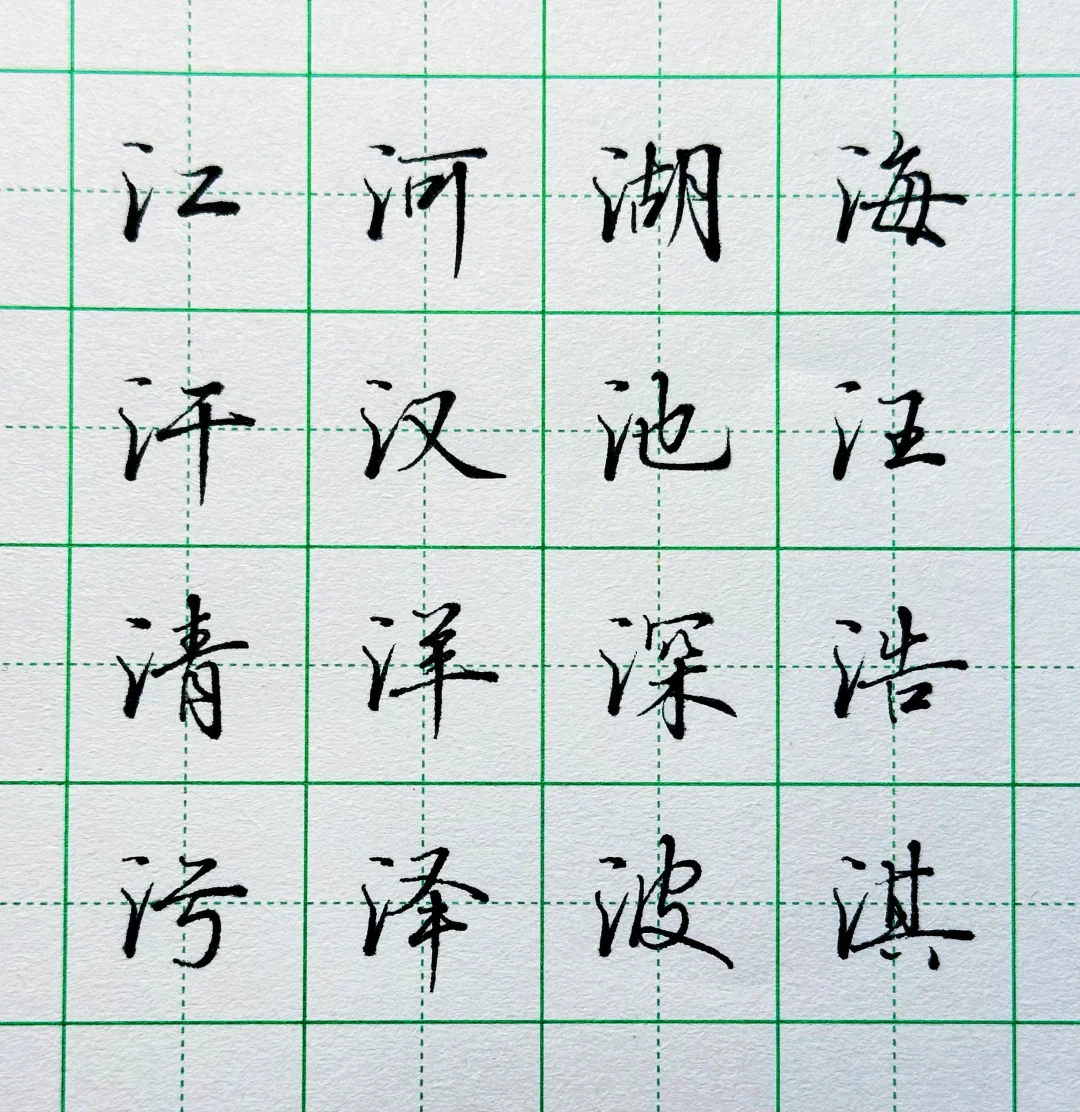 江河湖海
汗汉池汪
清洋深浩
污泽波淇